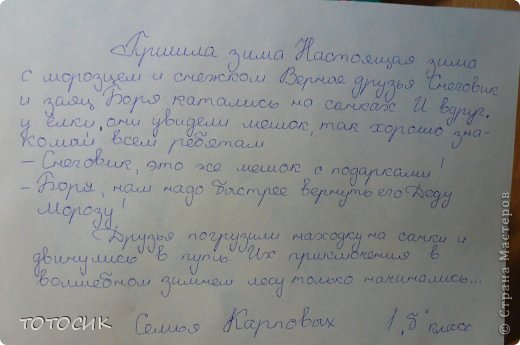 Пришла зима Настоящая зима
с морозцем и снежком. Верные друзья Снеговик
и заяц Боря катались на санках. И вдруг,
у ёлки, они увидели мешок, так хорошо зна-
комый всем ребятам
- Снеговик, это же мешок с подарками!
- Боря, нам надо быстрее вернуть его Деду
Морозу!
Друзья погрузили находку на санки и
двинулись в путь. Их приключения в
волшебном зимнем лесу только начинались...
Семья Карповых 1 „Б" класс
ТОТОСИК
© Страна Мастеров